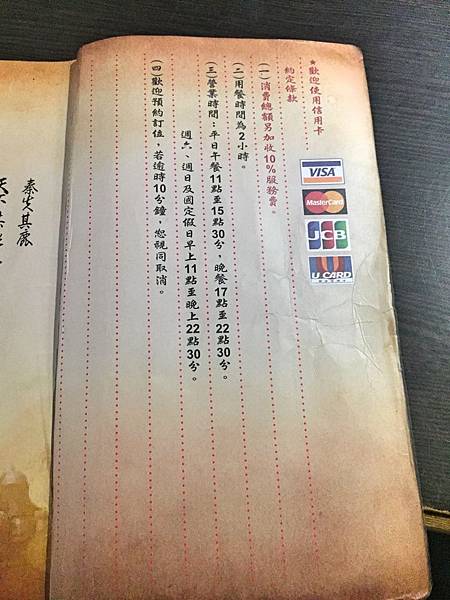 ★歡迎使用信用卡
約定條款
(一)消費總額另加收10%服務費。
(二)用餐時間為2小時。
(三)營業時間：平日午餐11點至15點30分，晚餐17點至22點30分。
週六、週日及國定假日早上11點至晚上22點30分。
(四)歡迎預約訂位，若逾時10分鐘，恕視同取消。
VISA
MasterCard
JCB
U CARD